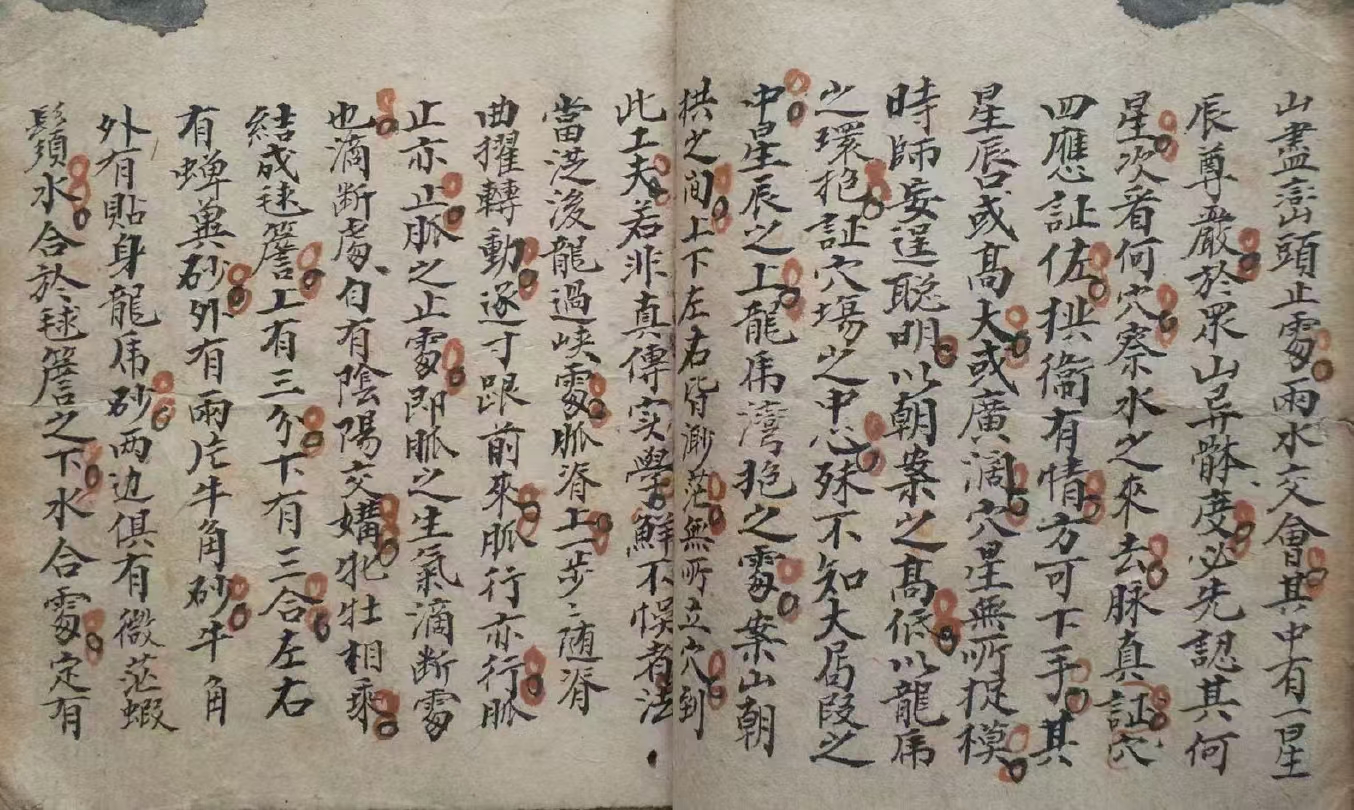 山盡巒頭止處兩水交會其中有一星
辰尊嚴於眾山异骵度必先認其何
星次看何穴察水之來去脉真証穴
四應証佐拱衞有情方可下手其
星辰或髙大或廣濶穴星無所捉模
時師妄逞聡明以朝案之髙低以龍虎
之環抱証穴塲之中心殊不知大局叚之
中星辰之上龍虎灣抱之處案山朝
拱之间上下左右皆渺茫無所立穴到
此工夫若非真傳实學鮮不悞者法
當從後龍過峡處脈脊上一步〻随脊
曲擢轉動逐寸跟前來脈行亦行脈
止亦止脈之止處即脈之生氣滴断處
也滴断處自有陰陽交媾牝牡相乘
結成毬簷上有三分下有三合左右
有蟬異砂外有兩片牛角砂牛角
外有貼身龍虎砂两边俱有微茫蝦
鬚水合於毬簷之下水合處定有